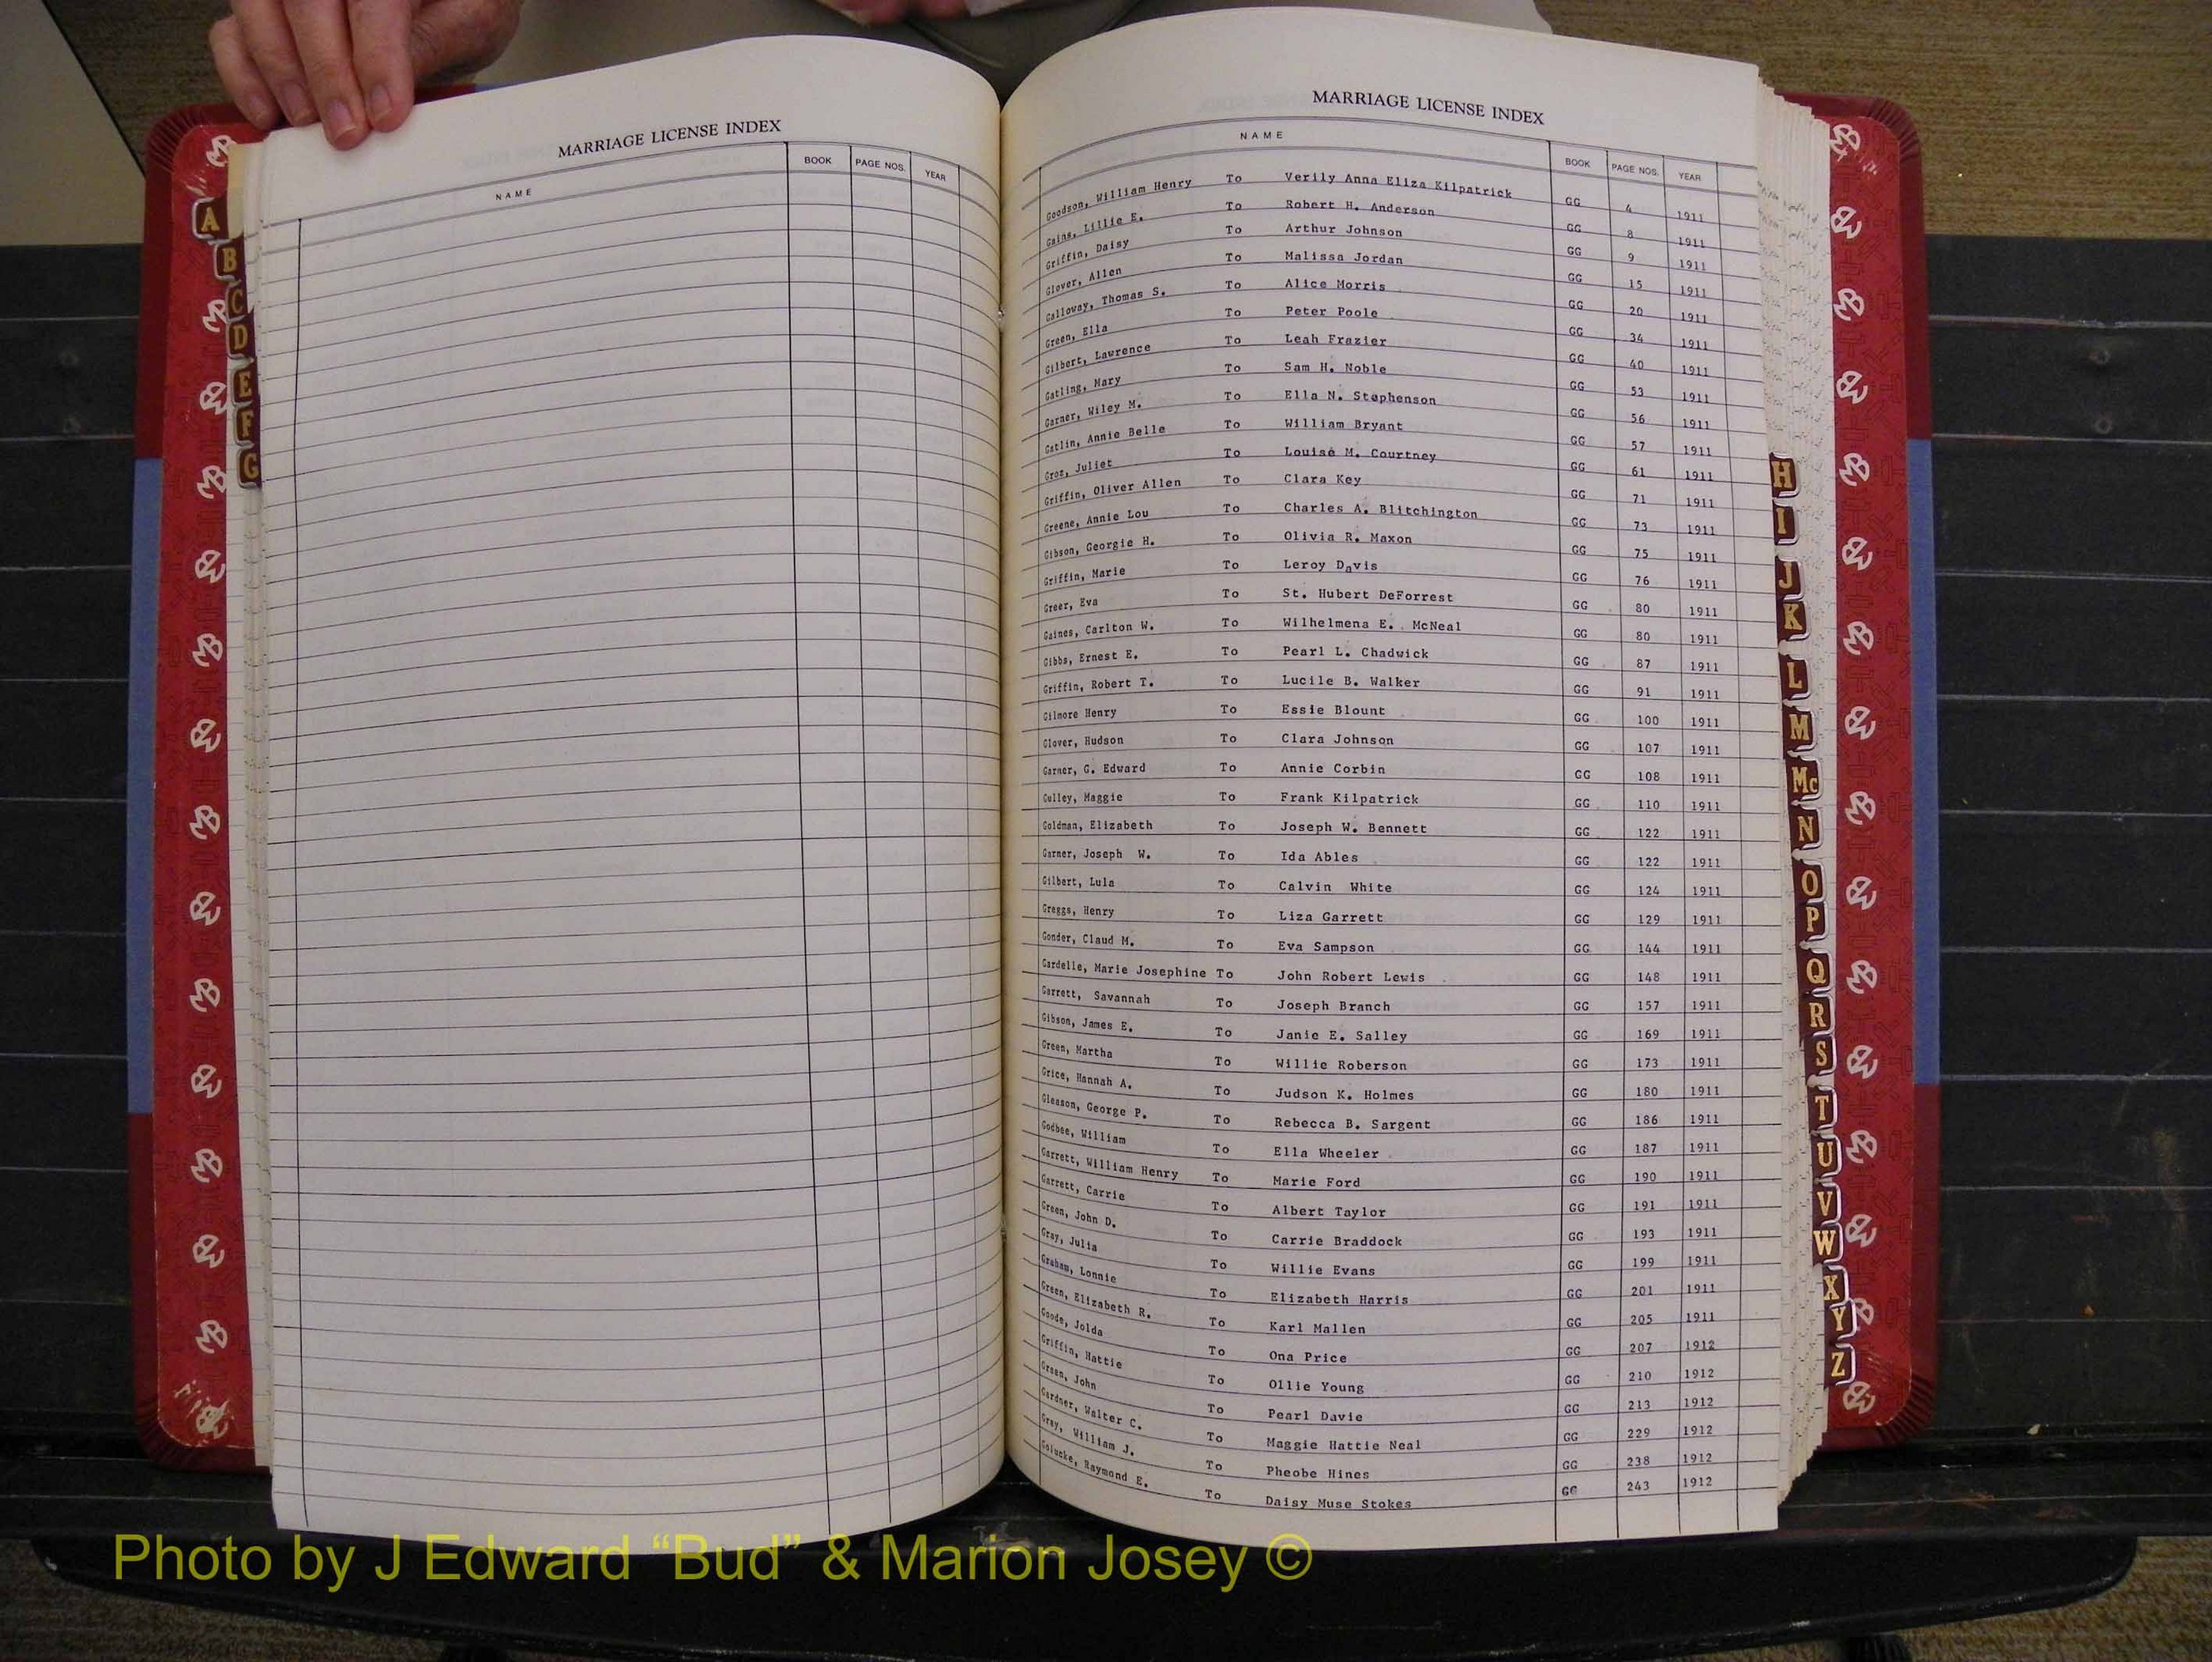 MARRIAGE LICENSE INDEX
NAME BOOK PAGE NOS. YEAR
A
B
C
D
E
F
G
MARRIAGE LICENSE INDEX
NAME BOOK PAGE NOS. YEAR
Goodson, William Henry To Verily Anna Eliza Kilpatrick GG 4 1911
Gains, Lillie E. To Robert H. Anderson GG 8 1911
Griffin, Daisy To Arthur Johnson GG 9 1911
Glover, Allen To Malissa Jordan GG 15 1911
Galloway, Thomas S. To Alice Morris GG 20 1911
Green, Ella To Peter Poole GG 34 1911
Gilbert, Lawrence To Leah Frazier GG 40 1911
Gatling, Mary To Sam H. Noble GG 53 1911
Garner, Wiley M. To Ella N. Stephenson GG 56 1911
Gatlin, Annie Belle To William Bryant GG 57 1911
Groz, Juliet To Louise M. Courtney GG 61 1911
Griffin, Oliver Allen To Clara Key GG 71 1911
Greene, Annie Lou To Charles A. Blitchington GG 73 1911
Gibson, Georgie H. To Olivia R. Maxon GG 75 1911
Griffin, Marie To Leroy Davis GG 76 1911
Greer, Eva To St. Hubert DeForrest GG 80 1911
Gaines, Carlton W. To Wilhelmena E. McNeal GG 80 1911
Gibbs, Ernest E. To Pearl L. Chadwick GG 87 1911
Griffin, Robert T. To Lucile B. Walker GG 91 1911
Gilmore Henry To Essie Blount GG 100 1911
Glover, Hudson To Clara Johnson GG 107 1911
Garner, G. Edward To Annie Corbin GG 108 1911
Gulley, Maggie To Frank Kilpatrick GG 110 1911
Goldman, Elizabeth To Joseph W. Bennett GG 122 1911
Garner, Joseph W. To Ida Ables GG 122 1911
Gilbert, Lula To Calvin White GG 124 1911
Greggs, Henry To Liza Garrett GG 129 1911
Gonder, Claud M. To Eva Sampson GG 144 1911
Gardelle, Marie Josephine To John Robert Lewis GG 148 1911
Garrett, Savannah To Joseph Branch GG 157 1911
Gibson, James E. To Janie E. Salley GG 169 1911
Green, Martha To Willie Roberson GG 173 1911
Grice, Hannah A. To Judson K. Holmes GG 180 1911
Gleason, George P. To Rebecca B. Sargent GG 186 1911
Godbee, William To Ella Wheeler GG 187 1911
Garrett, William Henry To Marie Ford GG 190 1911
Garrett, Carrie To Albert Taylor GG 191 1911
Green, John D. To Carrie Braddock GG 193 1911
Gray, Julia To Willie Evans GG 199 1911
Graham, Lonnie To Elizabeth Harris GG 201 1911
Green, Elizabeth R. To Karl Mallen GG 205 1911
Goode, Jolda To Ona Price GG 207 1912
Griffin, Hattie To Ollie Young GG 210 1912
Green, John To Pearl Davie GG 213 1912
Gardner, Walter C. To Maggie Hattie Neal GG 229 1912
Gray, William J. To Pheobe Hines GG 238 1912
Raymond E. To Daisy Muse Stokes GG 243 1912
H
I
J
K
L
M
Mc
N
O
P
Q
R
S
T
U
V
W
X
Y
Z
Photo by J Edward “Bud” & Marion Josey ©